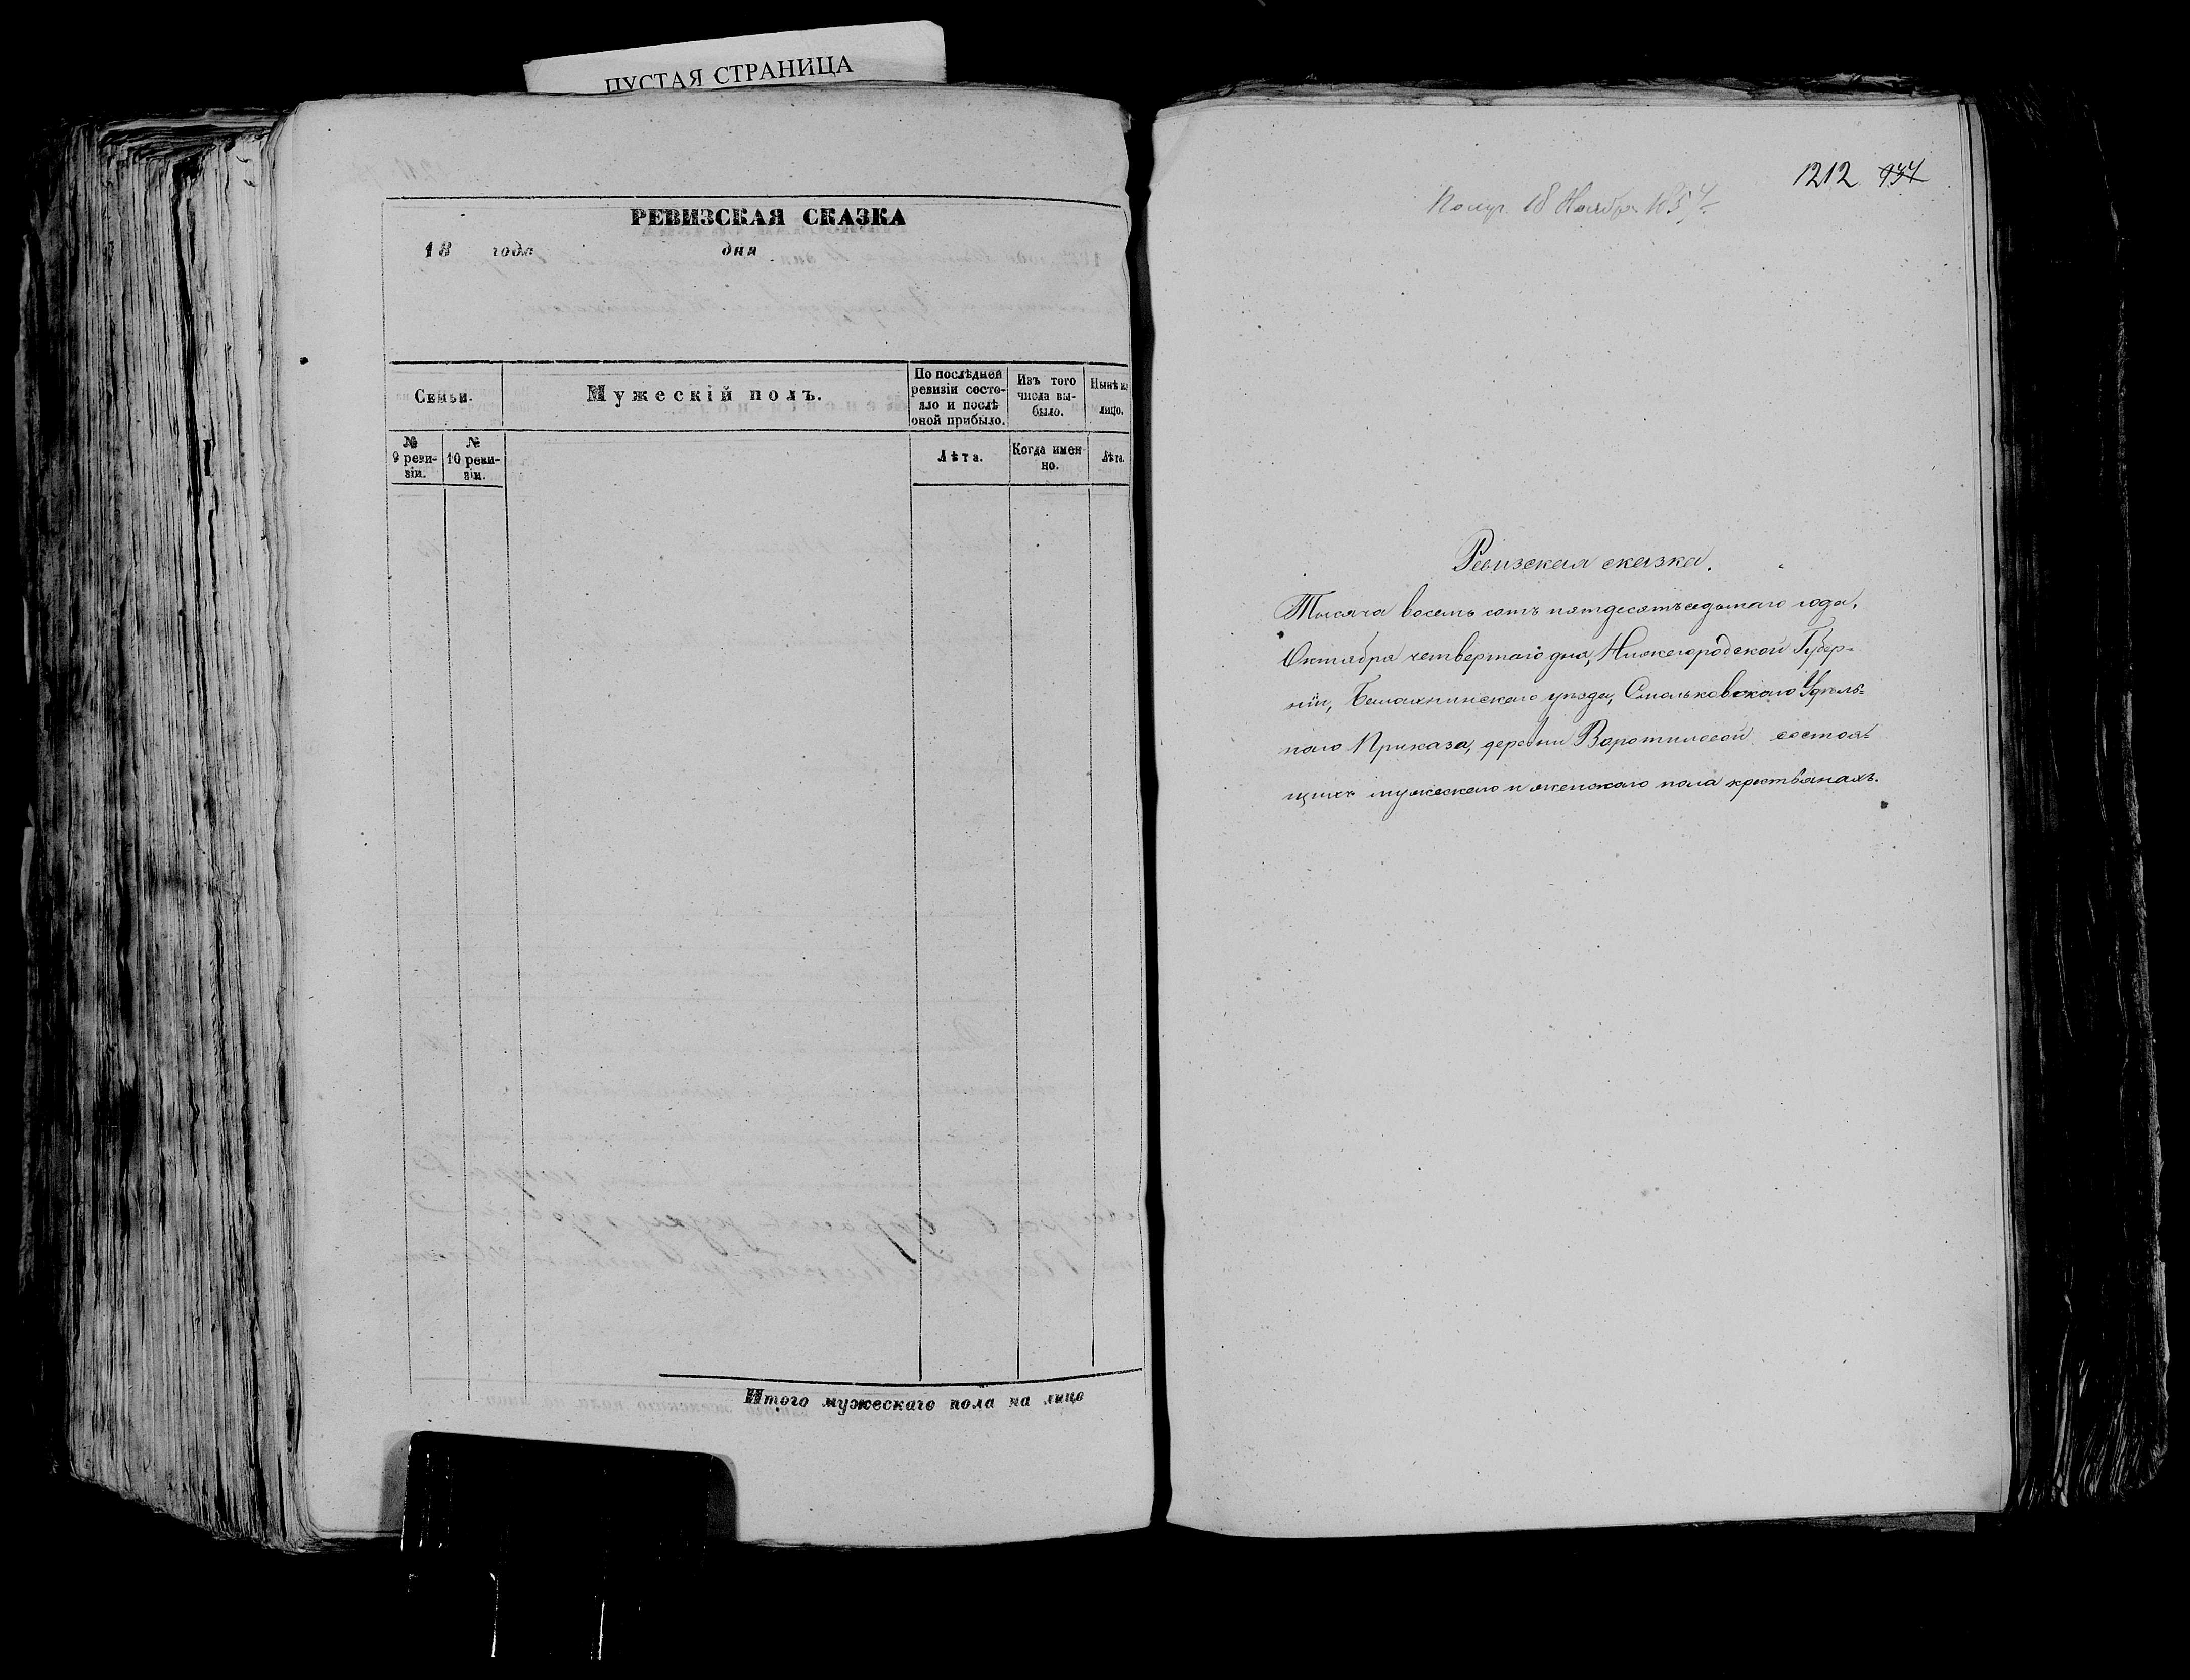 ПУСТАЯ СТРАНИЦА
РЕВИЗСКАЯ СКАЗКА
18 года дня
Семьи.
Мужескій полъ.
По послѣдней
ревизіи состо-
яло и послѣ
оной прибыло.
Изъ того
числа вы-
было.
Нынѣ на
лицо.
№
9 реви-
зіи.
№
10 реви-
зіи.
Лѣта.
Когда имен
но.
Лѣта.
Итого мужескаго пола на лицо
1212 934
Получ. 18 Ноября 1857 г.
Ревизская сказка.
Тысяча восемь сотъ пятдесятъ седьмаго года,
Октября четвертаго дня, Нижегородской Губер=
ніи, Балахнинскаго уѣзда, Смольковскаго Удѣль=
наго Приказа, деревни Воротиловой состоя=
щихъ мужескаго и женскаго пола крестьянахъ.